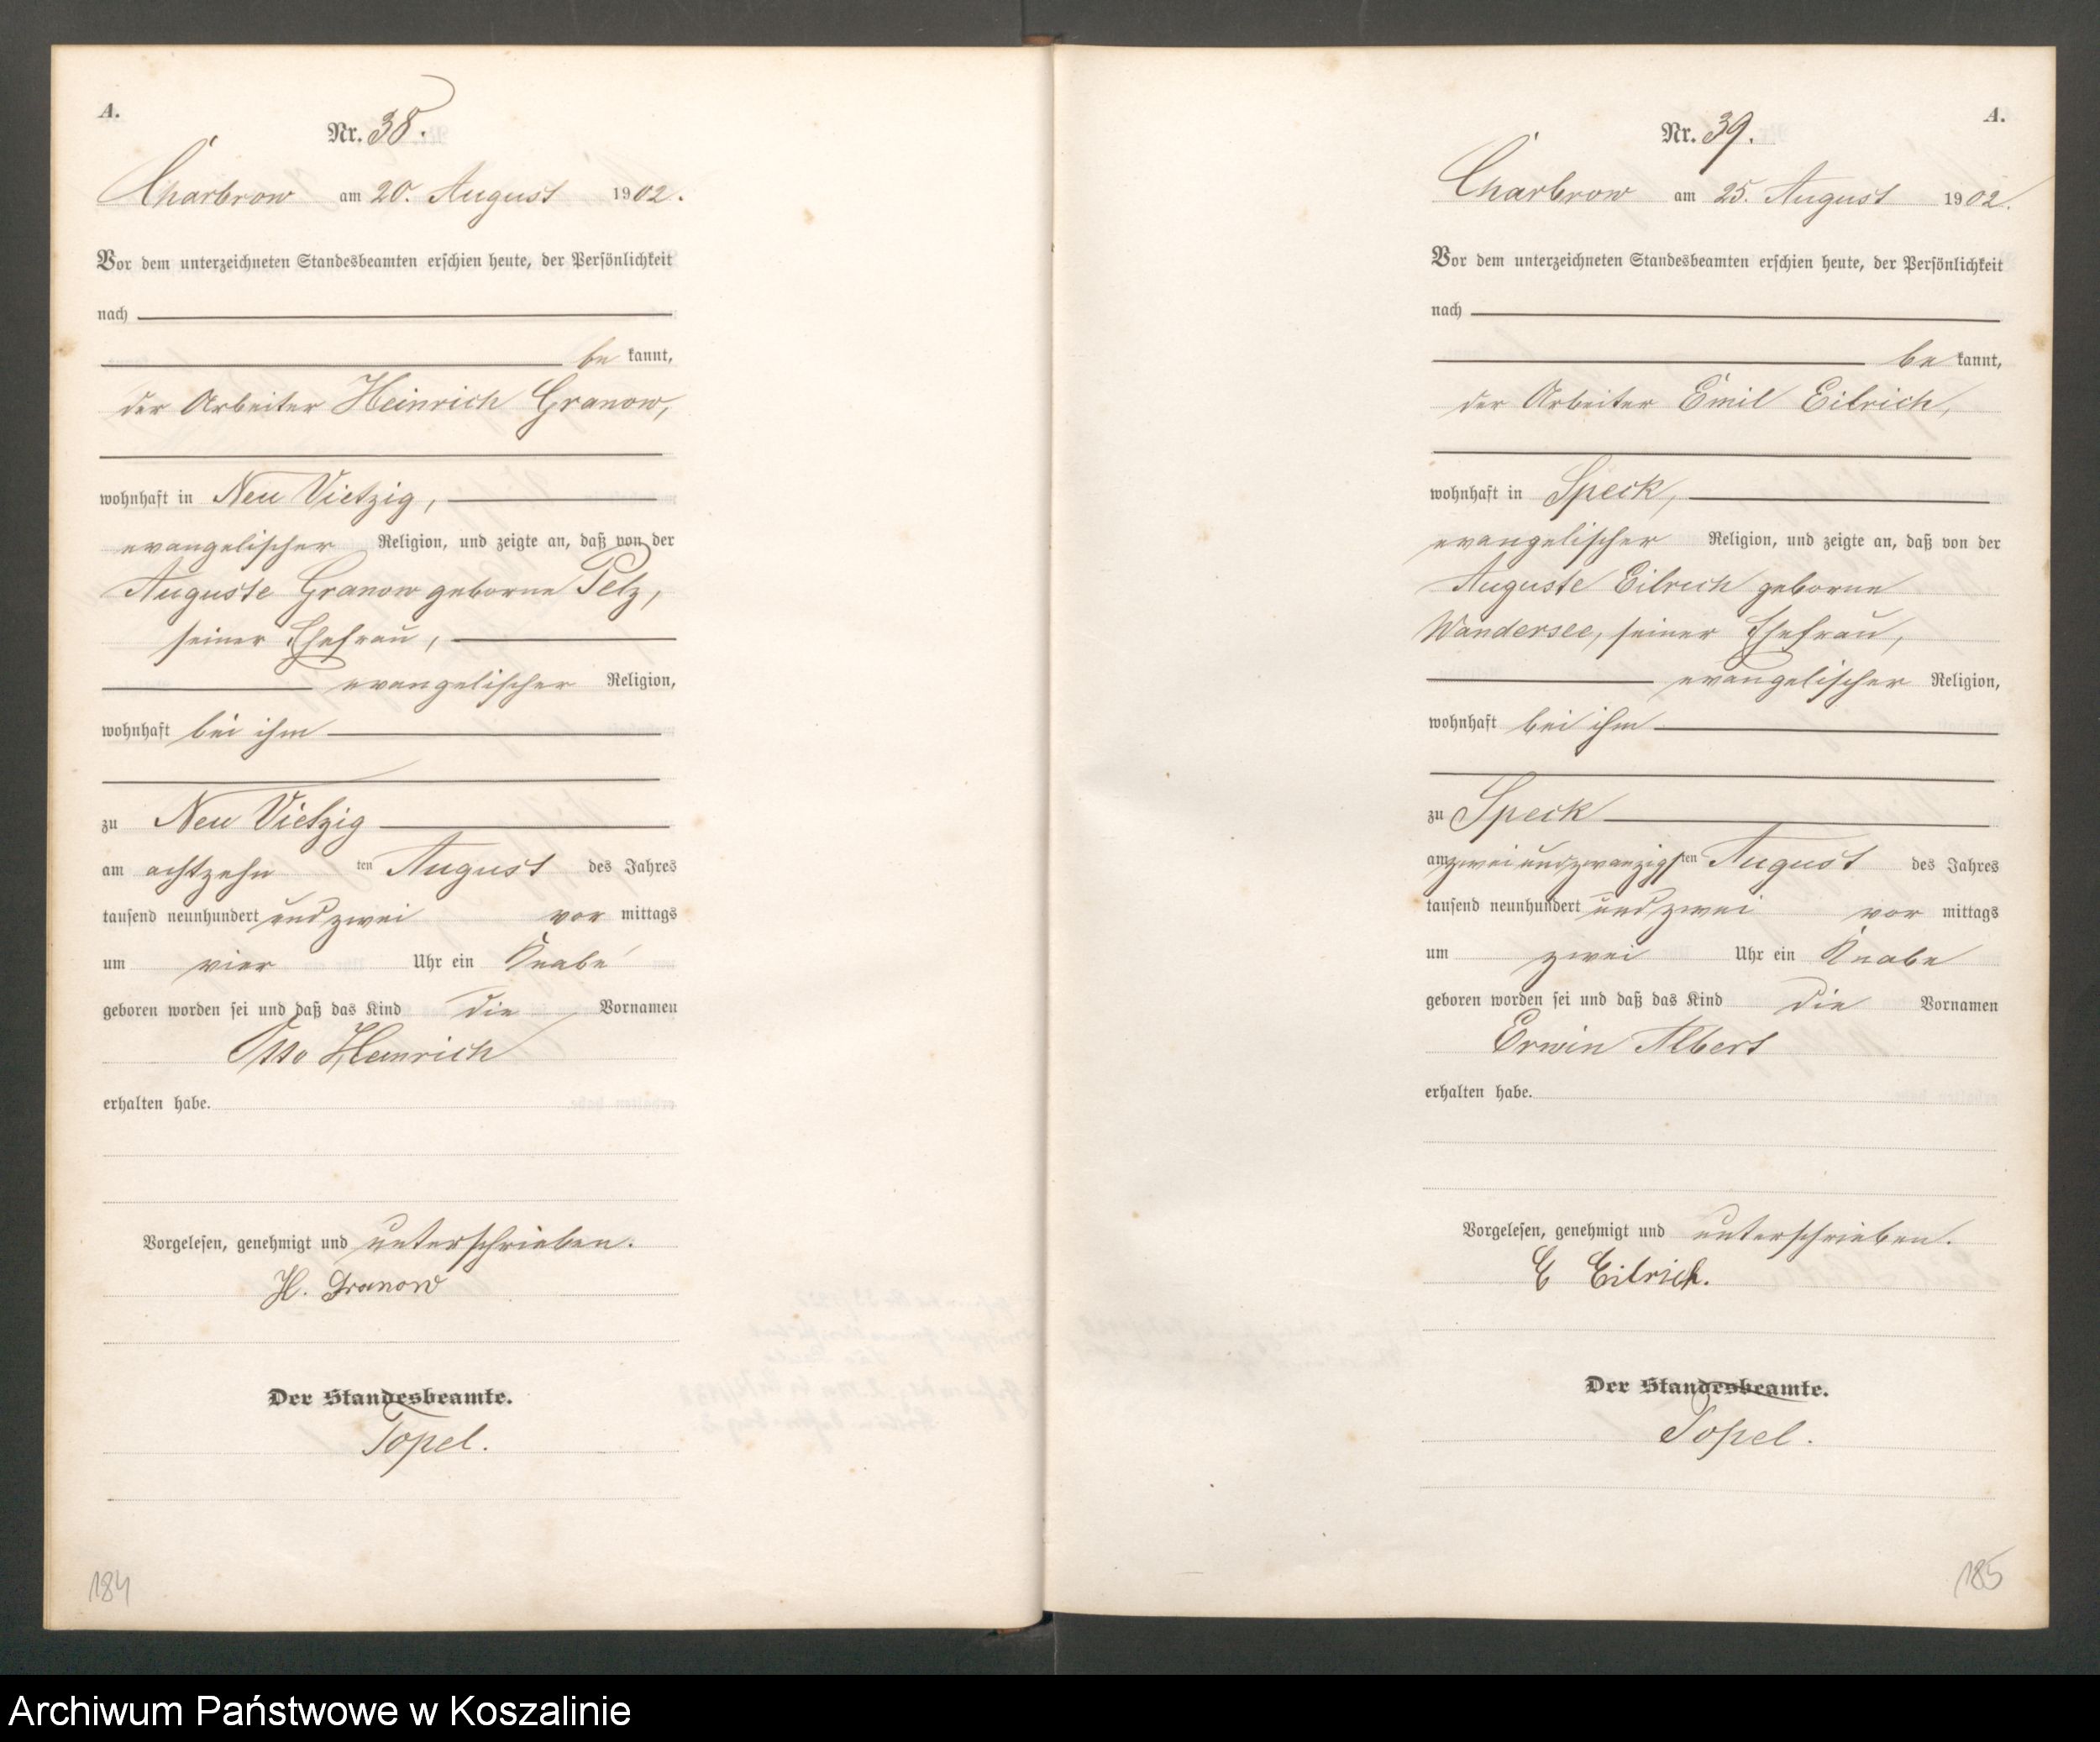 A.
Nr. 38.
Charbrow am 20. August 1902.
Vor dem unterzeichneten Standesbeamten erschien heute, der Persönlichkeit
nach
be kannt,
der Arbeiter Heinrich Granow,
wohnhaft in Neu Vietzig,
evangelischer Religion, und zeigte an, daß von der
Auguste Granow geborne Pelz,
seiner Ehefrau,
evangelischer Religion,
wohnhaft bei ihm
zu Neu Vietzig
am achtzehn ten August des Jahres
tausend neunhundert und zwei vor mittags
um vier Uhr ein Knabe
geboren worden sei und daß das Kind die Vornamen
Otto Heinrich
erhalten habe.
Vorgelesen, genehmigt und unterschrieben.
H. Granow
Der Standesbeamte.
Topel.
184
A.
Nr. 39.
Charbrow am 25. August 1902.
Vor dem unterzeichneten Standesbeamten erschien heute, der Persönlichkeit
nach
be kannt,
der Arbeiter Emil Eilrich,
wohnhaft in Speck,
evangelischer Religion, und zeigte an, daß von der
Auguste Eilrich geborne
Wandersee, seiner Ehefrau,
evangelischer Religion,
wohnhaft bei ihm
zu Speck
am zwei und zwanzigsten August des Jahres
tausend neunhundert und zwei vor mittags
um zwei Uhr ein Knabe
geboren worden sei und daß das Kind die Vornamen
Erwin Albert
erhalten habe.
Vorgelesen, genehmigt und unterschrieben.
E Eilrich.
Der Standesbeamte.
Topel.
185
Archiwum Państwowe w Koszalinie